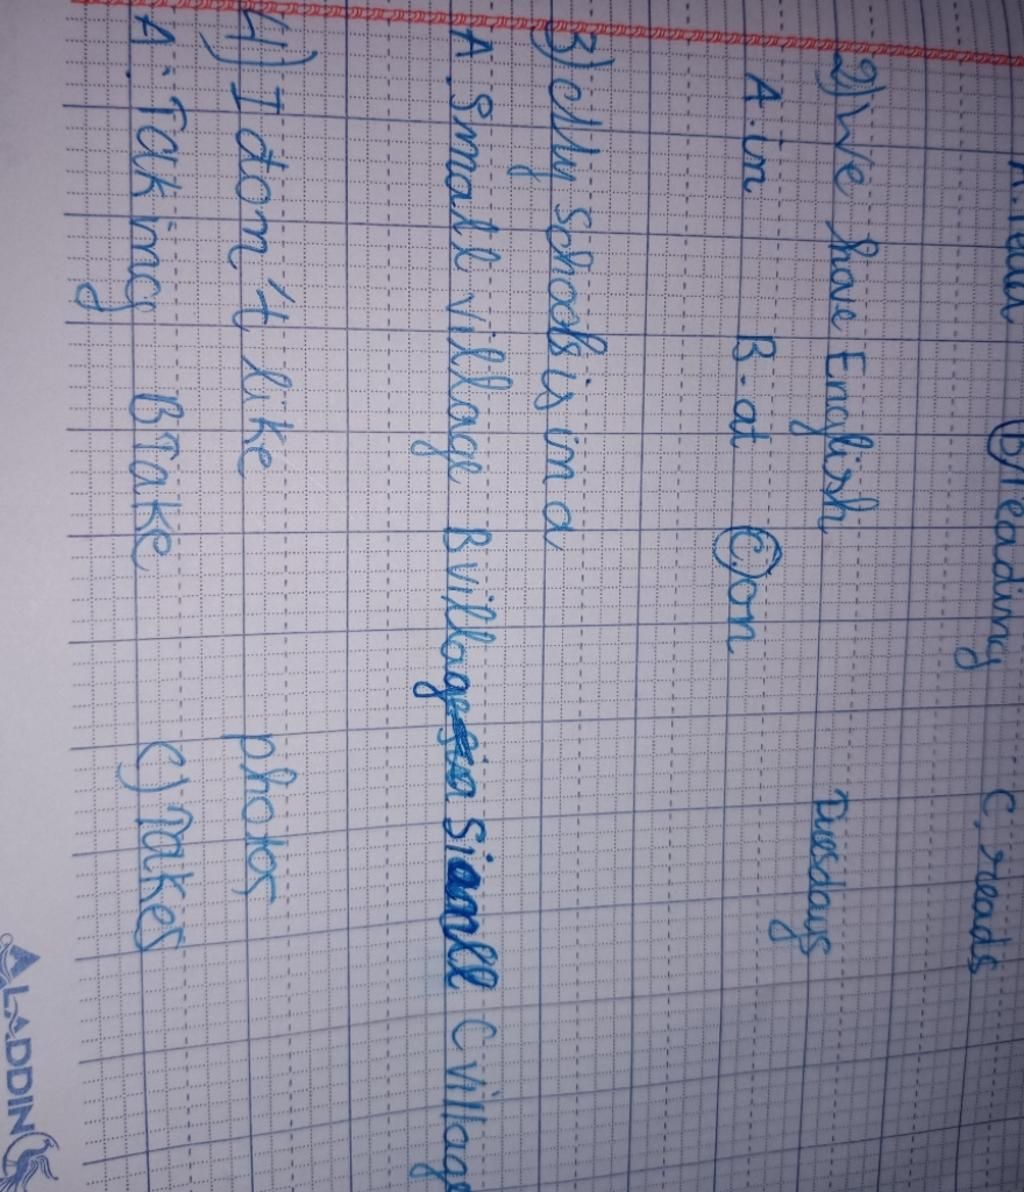 A. read B) reading C. reads
2) We have English Tuesdays
A. in B. at C) on
3) My schools is in a
A. Small village B village Small C village
4) I don't like photos
A. Taking B Take C) Takes
ALADDIN